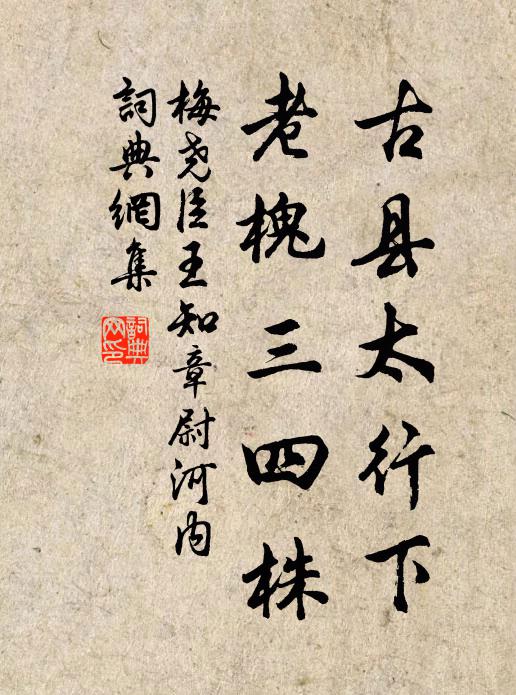 古县太行下
老槐三四株
梅尧臣王知章尉河内
詞典網集
詞典網印